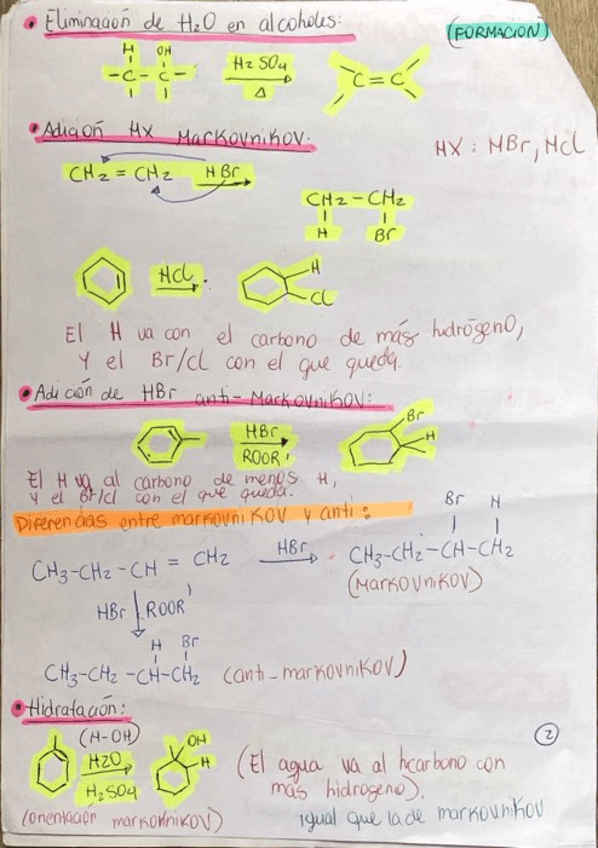 • Eliminación de H2O en alcoholes:
(FORMACIÓN)
H OH
-C-C-
H2SO4
Δ
C=C
• Adición HX Markovnikov.
HX : HBr, HCl
CH2 = CH2 HBr
CH2 - CH2
H Br
HCl
H
Cl
El H va con el carbono de más hidrógeno,
y el Br/Cl con el que queda.
• Adición de HBr anti-Markovnikov:
HBr
ROOR'
Br
H
El H va al carbono de menos H,
y el Br/Cl con el que queda.
Diferencias entre markovnikov y anti:
Br H
CH3-CH2-CH = CH2 HBr CH3-CH2-CH-CH2
(Markovnikov)
HBr ROOR'
H Br
CH3-CH2-CH-CH2 (anti-markovnikov)
• Hidratación:
(H-OH)
H2O
H2SO4
OH
H
(El agua va al hcarbono con
más hidrogeno).
2
(orientación markovnikov)
igual que la de markovnikov